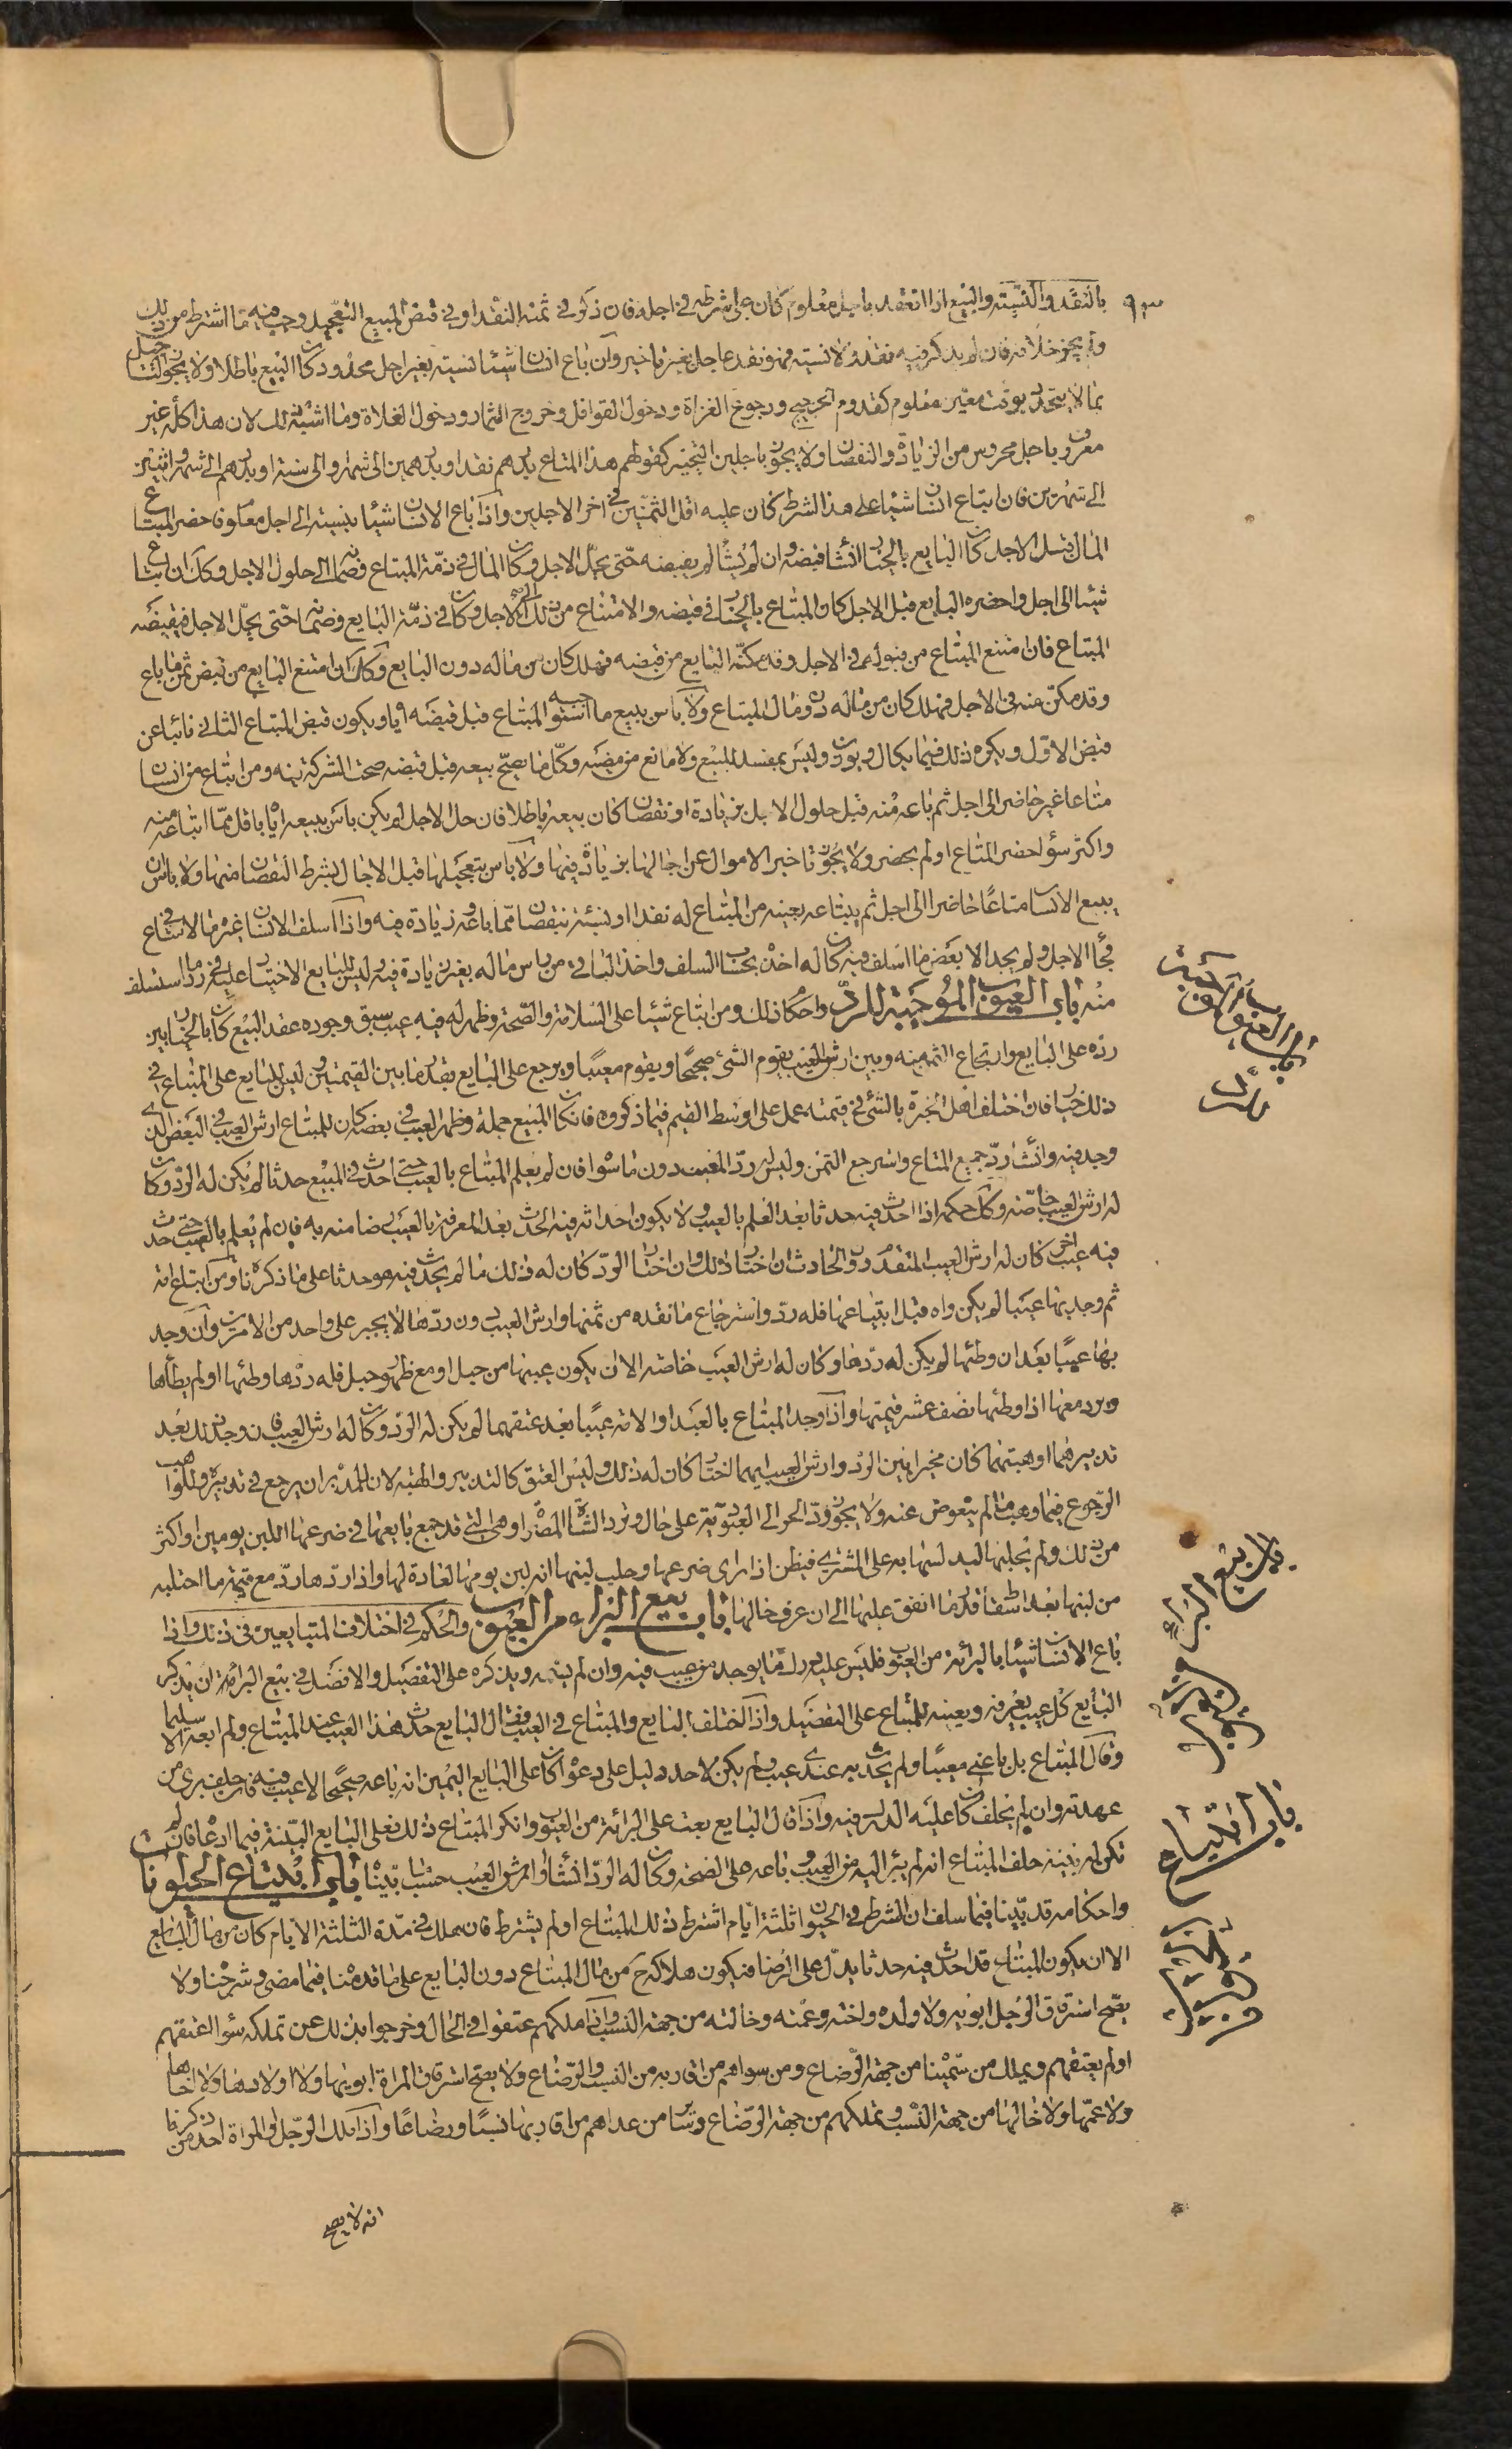 ٩٣
بالنقد والنسيئة والبيع اذا انعقد باجل معلوم كان على شرطه في اجله فان ذكر في ثمنه النقد او في قبض المبيع التعجيل وجب فيه ما اشترط من ذلك
ولم يجز خلافه فان لم يذكر فيه نقد ولا نسيئة فهو نقد عاجل بغير تاخير وان باع انسان شيئا نسيئة بغير اجل محدود كان البيع باطلا ولا يجوز التاجيل
بما لا يتحدد بوقت معين معلوم كقدوم الحجيج ورجوع الغزاة ودخول القوافل وخروج الثمار ودخول الغلاة وما اشبه ذلك لان هذا كله غير
معروف باجل محروس من الزيادة والنقصان ولا يجوز باجلين التخيير كقولهم هذا المتاع بدرهم نقدا وبدرهمين الى شهر او الى سنة او بدرهم الى شهر واثنين
الى شهرين فان ابتاع انسان شيئا على هذا الشرط كان عليه اقل الثمنين في اخر الاجلين واذا باع الانسان شيئا بنسيئة الى اجل معلوم فاحضر المبتاع
المال قبل الاجل كان البايع بالخيار ان شاء قبضه وان لم يشأ لم يقبضه حتى يحل الاجل وكان المال في ذمة المبتاع وضمانه الى حلول الاجل وكذلك ان ابتاع
شيئا الى اجل واحضره البايع قبل الاجل كان المبتاع بالخيار في قبضه والامتناع من ذلك الى الاجل وكان في ذمة البايع وضمانه حتى يحل الاجل فيقبضه
المبتاع فان امتنع المبتاع من قبوله في الاجل وقد مكنه البايع من قبضه فهلك كان من ماله دون البايع وكذلك ان امتنع البايع من قبض ثمن ما باع
وقد مكن منه في الاجل فهلك كان من ماله دون مال المبتاع ولا باس ببيع ما استوجبه المبتاع قبل قبضه اياه ويكون قبض المبتاع الثاني نائبا عن
قبض الاول ويكره ذلك فيما يكال ويوزن وليس بمفسد للبيع ولا مانع من مضيه وكل ما يصح بيعه قبل قبضه صحت الشركة فيه ومن ابتاع من انسان
متاعا غير حاضر الى اجل ثم باعه منه قبل حلول الاجل بزيادة او نقصان كان بيعه باطلا فان حل الاجل لم يكن باس ببيعه اياه باقل مما ابتاعه منه
واكثر سواء احضر المتاع او لم يحضر ولا يجوز تاخير الاموال عن اجالها بزيادة فيها ولا باس بتعجيلها قبل الاجال بشرط النقصان منها ولا باس ان
يبيع الانسان متاعا حاضرا الى اجل ثم يبتاعه بعينه من المبتاع له نقدا او نسيئة بنقصان مما باعه وزيادة فيه واذا اسلف الانسان غيره مالا في متاع
فجاء الاجل ولم يجد الا بعض ما اسلف فيه كان له اخذه بحساب السلف واخذ الباقي من راس ماله بغير زيادة فيه وليس للبايع الاختيار عليه في رد ما استسلف
منه باب العيوب الموجبة للرد واحكام ذلك ومن ابتاع شيئا على السلامة والصحة وظهر له فيه عيب سبق وجوده عقد البيع كان بالخيار بين
رده على البايع وارتجاع الثمن منه وبين ارش العيب يقوم الشئ صحيحا ويقوم معيبا ويرجع على البايع بقدر ما بين القيمتين وليس للبايع على المبتاع في
ذلك خيار فان اختلف اهل الخبرة بالشئ في قيمته عمل على اوسط القيم فيما ذكروه فان كان المبيع جملة وظهر العيب في بعضه كان للمبتاع ارش العيب في البعض الذي
وجد فيه وان شاء رد جميع المتاع واسترجع الثمن وليس له رد المعيب دون ما سواه فان لم يعلم المبتاع بالعيب حتى احدث في المبيع حدثا لم يكن له الرد وكان
له ارش العيب خاصة وكذلك حكمه اذا احدث فيه حدثا بعد العلم بالعيب ولا يكون احداثه فيه الحدث بعد المعرفة بالعيب رضا منه به فان لم يعلم بالعيب حتى حدث
فيه عيب اخر كان له ارش العيب المتقدم دون الحادث ان اختار ذلك وان اختار الرد كان له ذلك ما لم يحدث فيه هو حدثا على ما ذكرناه ومن ابتاع امة
ثم وجد بها عيبا لم يكن راه قبل ابتياعها فله ردها واسترجاع ما نقده من ثمنها وارش العيب دون ردها لا يجبر على واحد من الامرين وان وجد
بها عيبا بعد ان وطئها لم يكن له ردها وكان له ارش العيب خاصة الا ان يكون عيبها من حبل او مع ظهور حبل فله ردها وطئها او لم يطأها
ويرد معها اذا وطئها نصف عشر قيمتها واذا وجد المبتاع بالعبد او الامة عيبا بعد عتقهما لم يكن له الرد وكان له ارش العيب فان وجد ذلك بعد
تدبيرهما او هبتهما كان مخيرا بين الرد وارش العيب ايهما اختار كان له ذلك وليس العتق كالتدبير والهبة لان للمدبر ان يرجع في تدبيره وللواهب
الرجوع فيما وهب ما لم يتعوض عنه ولا يجوز رد الحر الى العبودية على حال وترد الشاة المصراة وهي التي قد جمع بايعها في ضرعها اللبن يومين او اكثر
من ذلك ولم يحلبها ليدلسها به على المشتري فيظن اذا راى ضرعها وحلب لبنها انه لبن يومها لعادة لها واذا ردها رد معها قيمة ما احتلبه
من لبنها بعد اسقاط قدر ما انفق عليها الى ان عرف حالها باب بيع البراءة من العيوب والحكم في اختلاف المتبايعين في ذلك واذا
باع الانسان شيئا بالبرائة من العيوب فليس عليه درك ما يوجد من عيب فيه وان لم يسمه ويذكره على التفصيل والافضل في بيع البراءة ان يذكر
البايع كل عيب يعرفه ويعينه للمبتاع على التفصيل واذا اختلف البايع والمبتاع في العيب فقال البايع حدث هذا العيب عند المبتاع ولم ابعه الا سليما
وقال المبتاع بل باعني معيبا ولم يحدث به عندي عيب ولم يكن لاحد دليل على دعواه كان على البايع اليمين انه باعه صحيحا لا عيب فيه فان حلف برئ من
عهدته وان لم يحلف كان عليه الدرك فيه واذا قال البايع بعت على البرائة من العيوب وانكر المبتاع ذلك فعلى البايع البينة فيما ادعاه فان لم
تكن له بينة حلف المبتاع انه لم يبرأ اليه من العيوب وباعه على الصحة وكان له الرد ان شاء او ارش العيب حسب ما بيناه باب ابتياع الحيوانات
واحكامه قد بينا فيما سلف ان الشرط في الحيوان ثلثة ايام اشترط ذلك المبتاع او لم يشترط فان هلك في مدة الثلثة الايام كان من مال البايع
الا ان يكون المبتاع قد احدث فيه حدثا يدل على الرضا فيكون هلاكه من مال المبتاع دون البايع على ما قدمناه فيما مضى وشرحناه ولا
يصح استرقاق الرجل ابويه ولا ولده واخته وعمته وخالته من جهة النسب واذا ملكهم عتقوا في الحال وخرجوا بذلك عن تملكه سواء اعتقهم
او لم يعتقهم ويملك من سميناه من جهة الرضاع ومن سواهم من اقاربه من النسب والرضاع ولا يصح استرقاق المراة ابويها ولا اولادها ولا اخاها
ولا عمها ولا خالها من جهة النسب وتملكهم من جهة الرضاع وتملك من عداهم من اقاربها نسبا ورضاعا واذا ملك الرجل او المراة احد من ذكرنا
انه لا يصح
باب العيوب الموجبة للرد
باب بيع البراءة من العيوب
باب ابتياع الحيوان